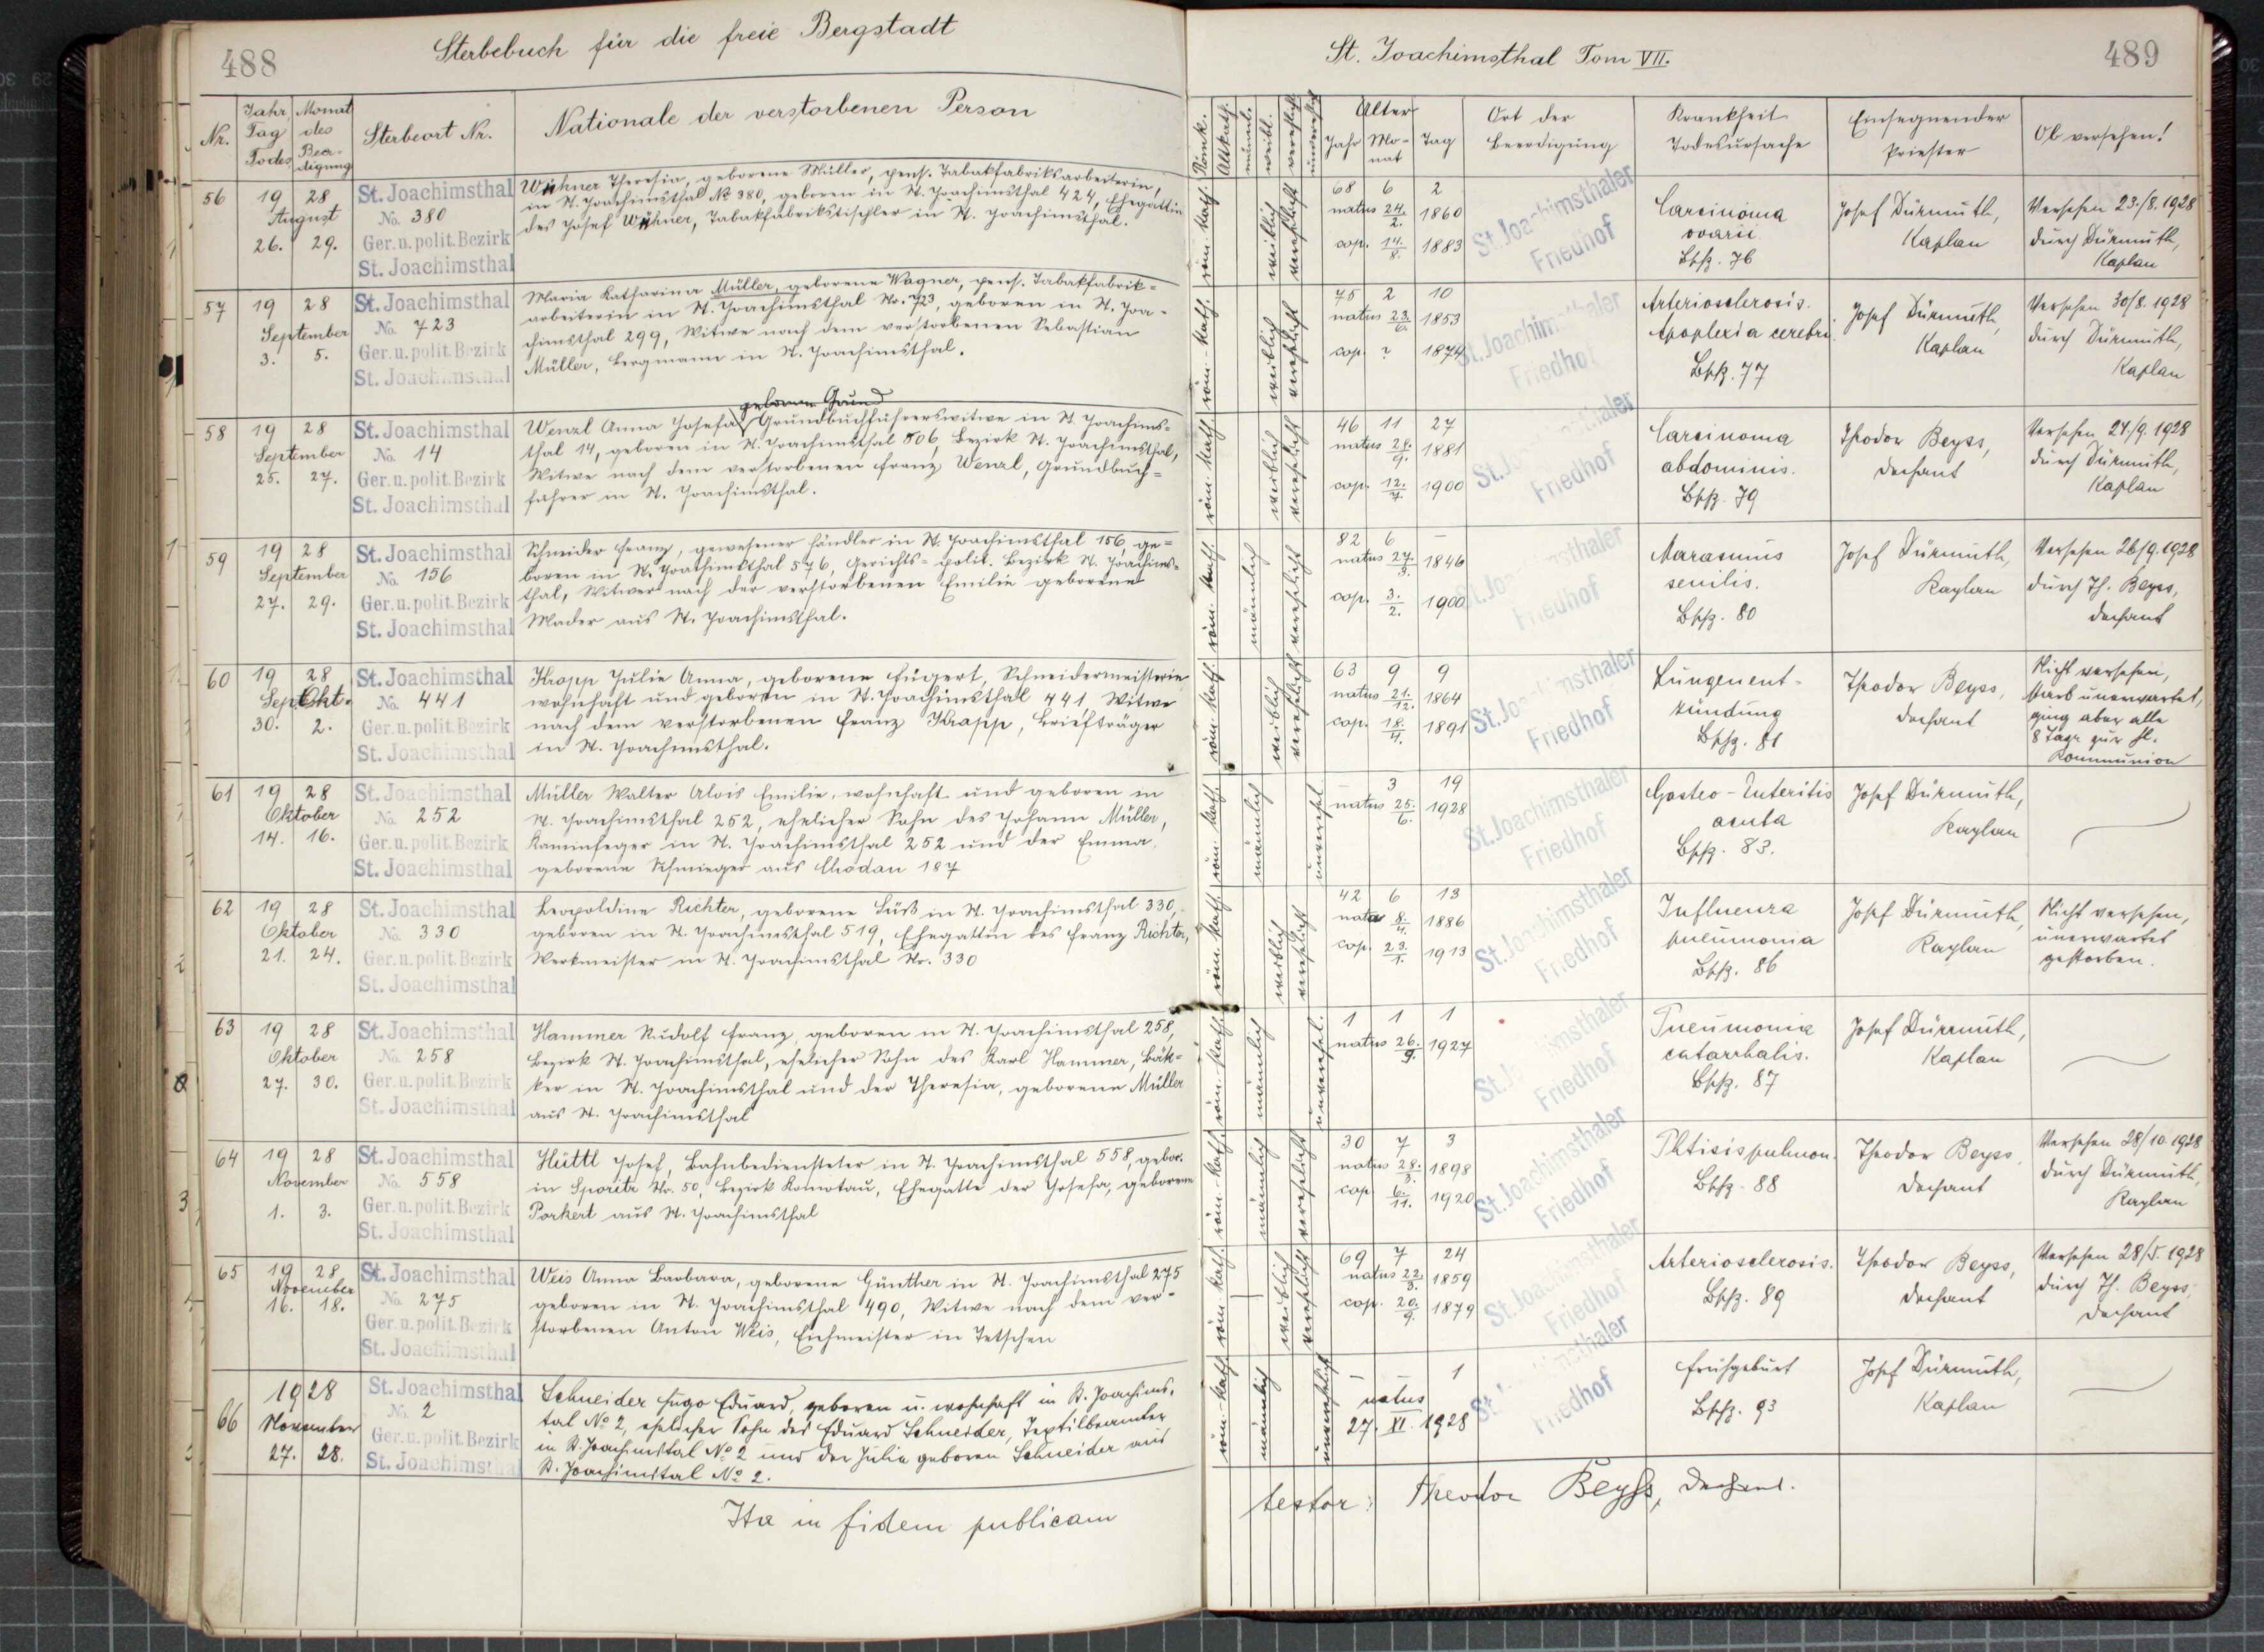 488
Sterbebuch für die freie Bergstadt
Nr.
Jahr Tag Todes
Monat des Beerdigung
Sterbeort Nr.
Nationale der verstorbenen Person
56
19 28
August
26. 29.
St. Joachimsthal
No. 380
Ger. u. polit. Bezirk
St. Joachimsthal
Theresia, geborene Müller, pens. Tabakfabriksarbeiterin,
in St. Joachimsthal No 380, geboren in St. Joachimsthal 424, Ehegattin
des Josef Tabakfabrikstischler in St. Joachimsthal.
57
19 28
September
3. 5.
St. Joachimsthal
No. 723
Ger. u. polit. Bezirk
St. Joachimsthal
Maria Katharina Müller, geborene Wagner, pens. Tabakfabrik=
arbeiterin in St. Joachimsthal Nr. 723, geboren in St. Joa-
chimsthal 299, Witwe nach dem verstorbenen Sebastian
Müller, Bergmann in St. Joachimsthal.
58
19 28
September
25. 27.
St. Joachimsthal
No. 14
Ger. u. polit. Bezirk
St. Joachimsthal
geborene Grund
Wenzl Anna Josefa Grundbuchführerswitwe in St. Joachims=
thal 14, geboren in St. Joachimsthal 506, Bezirk St. Joachimsthal,
Witwe nach dem verstorbenen Franz Wenzl, Grundbuch=
führer in St. Joachimsthal.
59
19 28
September
27. 29.
St. Joachimsthal
No. 156
Ger. u. polit. Bezirk
St. Joachimsthal
Schneider Franz, gewesener Händler in St. Joachimsthal 156, ge=
boren in St. Joachimsthal 576, Gerichts= polit. Bezirk St. Joachims=
thal, Witwer nach der verstorbenen Emilie geborene
Mader aus St. Joachimsthal.
60
19 28
Sept. Okt.
30. 2.
St. Joachimsthal
No. 441
Ger. u. polit. Bezirk
St. Joachimsthal
Kropp Julie Anna, geborene Fügert, Schneidermeisterin
wohnhaft und geboren in St. Joachimsthal 441, Witwe
nach dem verstorbenen Franz Briefträger
in St. Joachimsthal.
61
19 28
Oktober
14. 16.
St. Joachimsthal
No. 252
Ger. u. polit. Bezirk
St. Joachimsthal
Müller Walter Alois Emilie, wohnhaft und geboren in
St. Joachimsthal 252, ehelicher Sohn des Johann Müller,
Kaminfeger in St. Joachimsthal 252 und der Emma,
geborene Schmieger aus Chodau 187
62
19 28
Oktober
21. 24.
St. Joachimsthal
No. 330
Ger. u. polit. Bezirk
St. Joachimsthal
Leopoldine Richter, geborene Süß in St. Joachimsthal 330,
geboren in St. Joachimsthal 519, Ehegattin des Franz Richter,
Werkmeister in St. Joachimsthal Nr. 330
63
19 28
Oktober
27. 30.
St. Joachimsthal
No. 258
Ger. u. polit. Bezirk
St. Joachimsthal
Hammer Rudolf Franz, geboren in St. Joachimsthal 258,
Bezirk St. Joachimsthal, ehelicher Sohn des Karl Hammer, Bäk=
ker in St. Joachimsthal und der Theresia, geborene Müller
aus St. Joachimsthal
64
19 28
November
1. 3.
St. Joachimsthal
No. 558
Ger. u. polit. Bezirk
St. Joachimsthal
Hüttl Josef, Bahnbediensteter in St. Joachimsthal 558, gebor.
in Sporitz Nr. 50, Bezirk Komotau, Ehegatte der Josefa, geborene
Porkert aus St. Joachimsthal
65
19 28
November
16. 18.
St. Joachimsthal
No. 275
Ger. u. polit. Bezirk
St. Joachimsthal
Weis Anna Barbara, geborene Günther in St. Joachimsthal 275
geboren in St. Joachimsthal 490, Witwe nach dem ver-
storbenen Anton Weis, Eichmeister in Tetschen
66
1928
November
27. 28.
St. Joachimsthal
No. 2
Ger. u. polit. Bezirk
St. Joachimsthal
Schneider Hugo Eduard, geboren u. wohnhaft in St. Joachims,
tal No 2, ehelicher Sohn des Eduard Schneider, Textilbeamter
in St. Joachimstal No 2 und der Julia geboren Schneider aus
St. Joachimstal No 2.
Ita in fidem publicam
St. Joachimsthal Tom VII.
489
Römk.
Altkath.
männl.
weibl.
verehelicht
unverehelich
Alter
Jahr Mo-nat Tag
Ort der Beerdigung
Krankheit Todesursache
Einsegnender Priester
Ob versehen!
röm. kath. weiblich verehelicht
68 6 2
natus 24./2. 1860
cop. 14./8. 1883
St. Joachimsthaler
Friedhof
Carcinoma
ovarii
Bschg. 76
Josef Dürmuth,
Kaplan
Versehen 23./8. 1928
durch Dürmuth,
Kaplan
röm. kath. weiblich verehelicht
75 2 10
natus 23./6. 1853
cop. ? 1874
St. Joachimsthaler
Friedhof
Arteriosclerosis.
Apoplexia cerebri.
Bschg. 77
Josef Dürmuth,
Kaplan
Versehen 30/8. 1928
durch Dürmuth,
Kaplan
röm. kath. weiblich verehelicht
46 11 27
natus 28./9. 1881
cop. 12./7. 1900
Friedhof
Carcinoma
abdominis.
Bschg. 79
Theodor Beyss,
Dechant
Versehen 24/9. 1928
durch Dürmuth,
Kaplan
röm. kath. männlich verehelicht
82 6 -
natus 27./3. 1846
cop. 3./2. 1900
St. Joachimsthaler
Friedhof
Marasmus
senilis.
Bschg. 80
Josef Dürmuth,
Kaplan
Versehen 26/9. 1928
durch Th. Beyss,
Dechant
röm. kath. weiblich verehelicht
63 9 9
natus 21./12. 1864
cop. 18./4. 1891
St. Joachimsthaler
Friedhof
Lungenent-
zündung
Bschg. 81
Theodor Beyss,
Dechant
Nicht versehen,
starb unerwartet,
ging aber alle
8 Tage zur hl.
Kommunion
röm. kath. männlich unverehel.
- 3 19
natus 25./6. 1928
St. Joachimsthaler
Friedhof
Gastro-Enteritis
acuta
Bschg. 83.
Josef Dürmuth,
Kaplan
röm. kath. weiblich verehelicht
42 6 13
nata 8./4. 1886
cop. 23./1. 1913
St. Joachimsthaler
Friedhof
Influenza
pneumonia
Bschg. 86
Josef Dürmuth,
Kaplan
Nicht versehen,
unerwartet
gestorben.
röm. kath. männlich unverehel.
1 1 1
natus 26./9. 1927
St. Joachimsthaler
Friedhof
Pneumonia
catarrhalis.
Bschg. 87
Josef Dürmuth,
Kaplan
röm. kath. männlich verehelicht
30 7 3
natus 28./3. 1898
cop. 6./11. 1920
St. Joachimsthaler
Friedhof
Phtisis pulmon.
Bschg. 88
Theodor Beyss,
Dechant
Versehen 28/10. 1928
durch Dürmuth,
Kaplan
röm. kath. weiblich verehelicht
69 7 24
natus 22./3. 1859
cop. 20./9. 1879
St. Joachimsthaler
Friedhof
Arteriosclerosis.
Bschg. 89
Theodor Beyss,
Dechant
Versehen 28/5. 1928
durch Th. Beyss,
Dechant
röm. kath. männlich unverehelicht
- - 1
natus
27. XI. 1928
Friedhof
Frühgeburt
Bschg. 93
Josef Dürmuth,
Kaplan
testor: Theodor Beyss, Dechant.